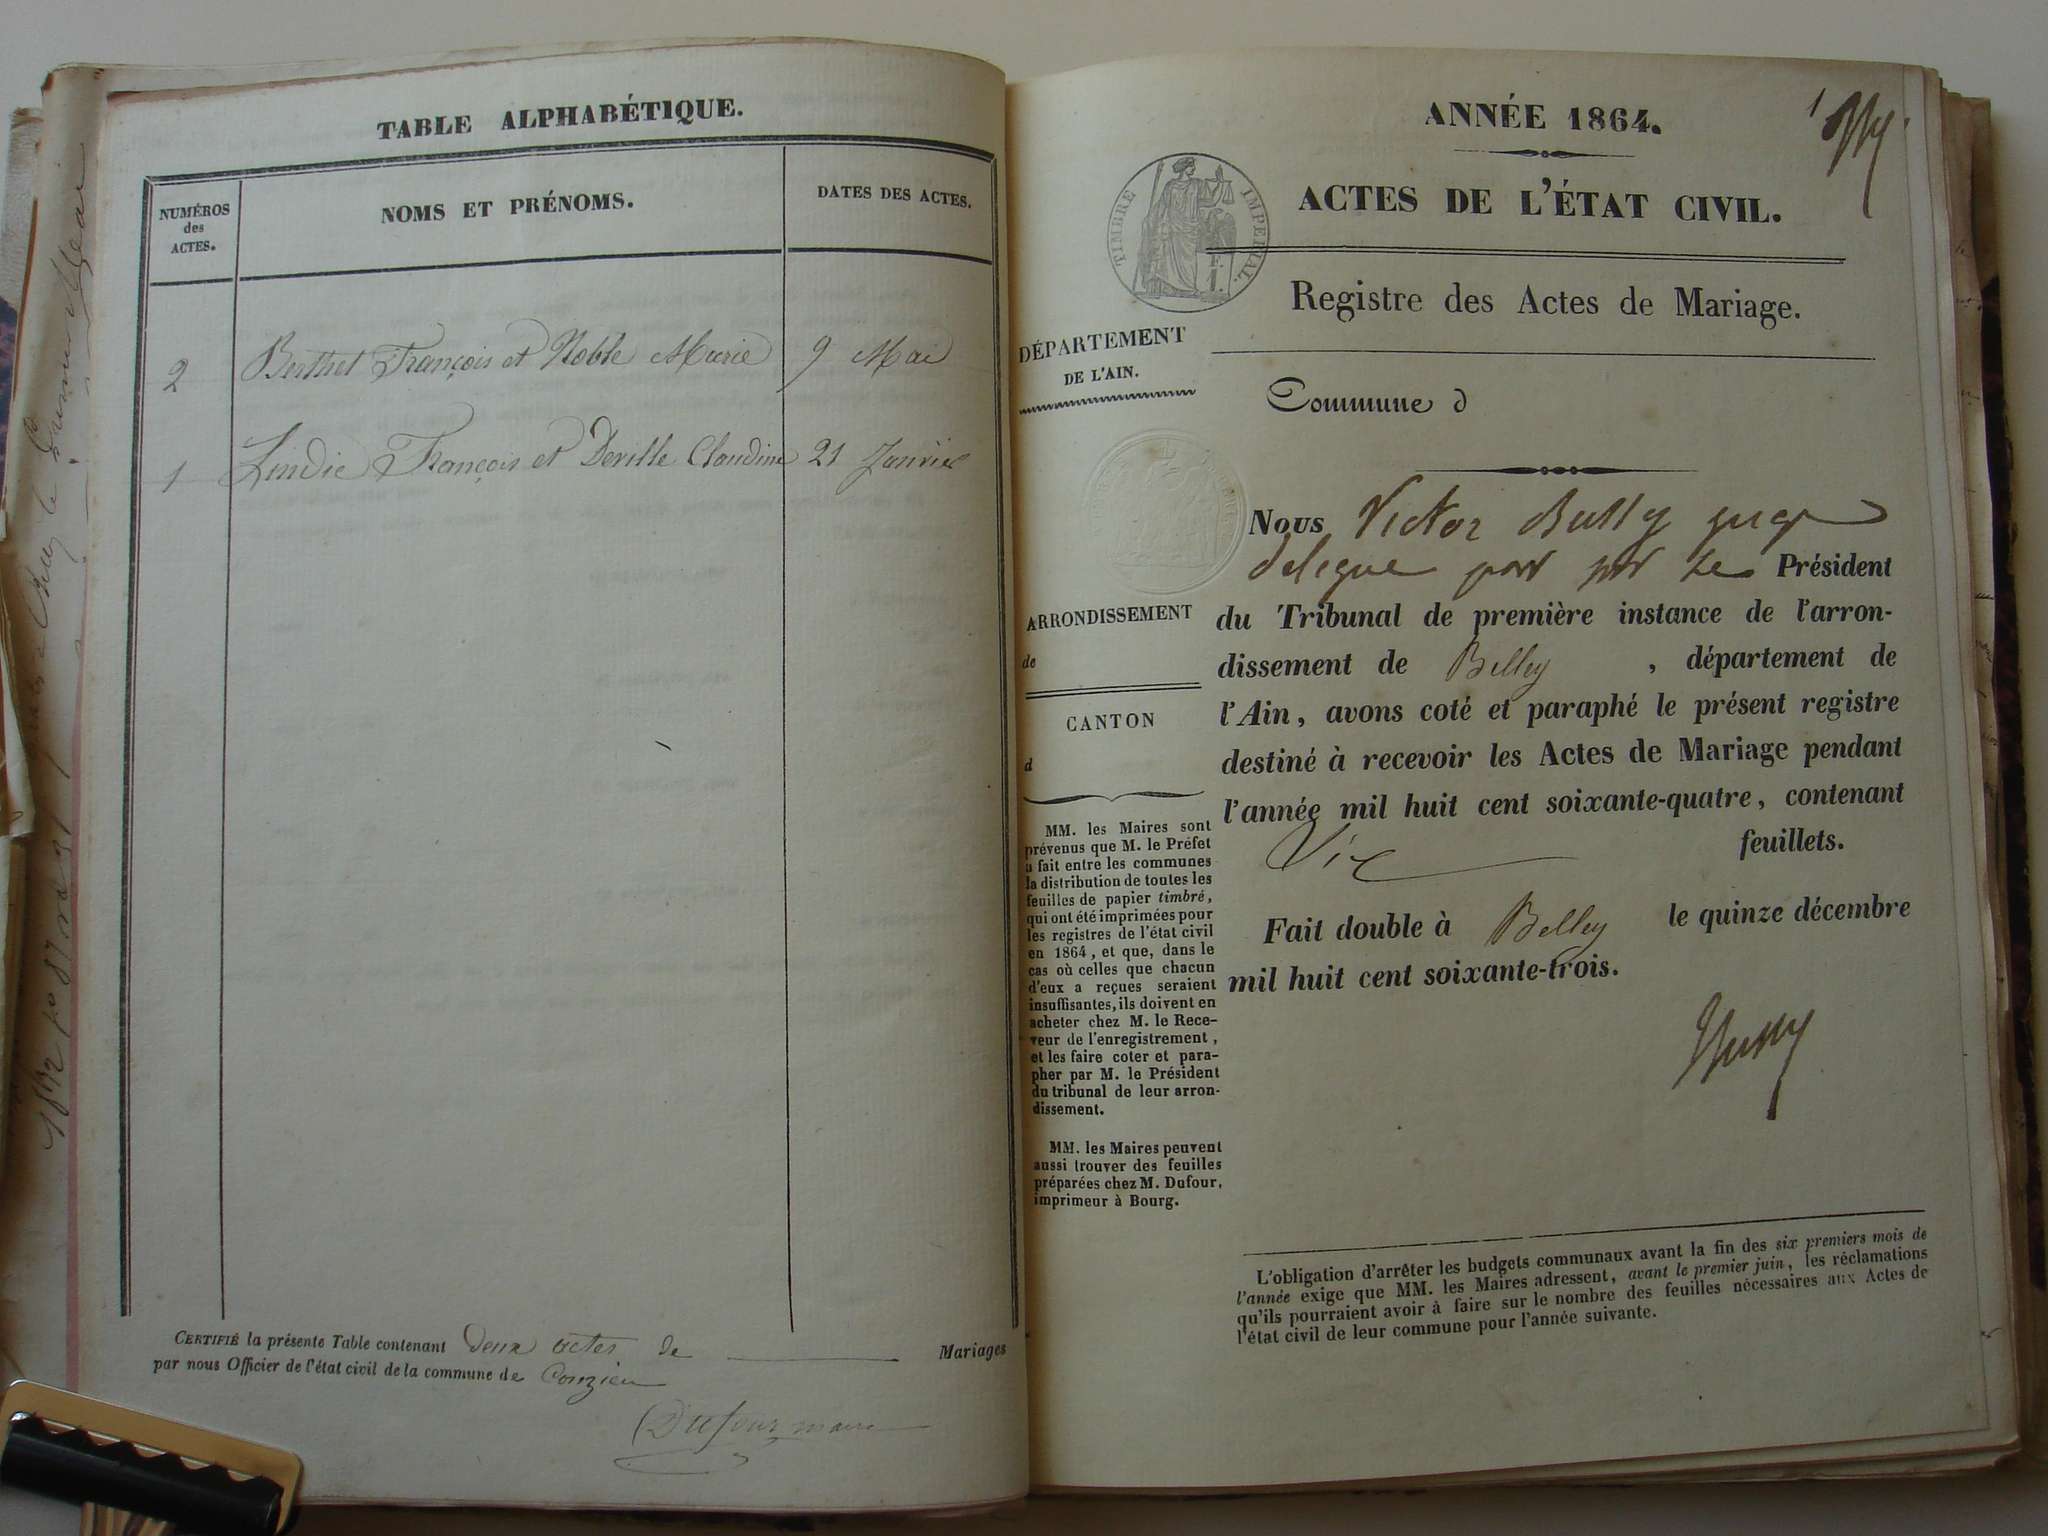 TABLE ALPHABÉTIQUE.
NUMÉROS
des
ACTES.
NOMS ET PRÉNOMS.
DATES DES ACTES.
2 Berthet François et Noble Marie 9 Mai
1 François et Deville Claudine 21 Janvier
CERTIFIÉ la présente Table contenant deux actes de Mariages
par nous Officier de l'état civil de la commune de Conzieu
Dufour maire
ANNÉE 1864.
1
ACTES DE L'ÉTAT CIVIL.
TIMBRE IMPÉRIAL.
Registre des Actes de Mariage.
DÉPARTEMENT
DE L'AIN.
Commune d
Nous Victor juge
délégué par le Président
du Tribunal de première instance de l'arron-
dissement de Belley , département de
l'Ain, avons coté et paraphé le présent registre
destiné à recevoir les Actes de Mariage pendant
l'année mil huit cent soixante-quatre, contenant
feuillets.
Fait double à Belley le quinze décembre
mil huit cent soixante-trois.
ARRONDISSEMENT
de
CANTON
d
MM. les Maires sont
prévenus que M. le Préfet
a fait entre les communes
la distribution de toutes les
feuilles de papier timbré,
qui ont été imprimées pour
les registres de l'état civil
en 1864, et que, dans le
cas où celles que chacun
d'eux a reçues seraient
insuffisantes, ils doivent en
acheter chez M. le Rece-
veur de l'enregistrement,
et les faire coter et para-
pher par M. le Président
du tribunal de leur arron-
dissement.
MM. les Maires peuvent
aussi trouver des feuilles
préparées chez M. Dufour,
imprimeur à Bourg.
L'obligation d'arrêter les budgets communaux avant la fin des six premiers mois de
l'année exige que MM. les Maires adressent, avant le premier juin, les réclamations
qu'ils pourraient avoir à faire sur le nombre des feuilles nécessaires aux Actes de
l'état civil de leur commune pour l'année suivante.